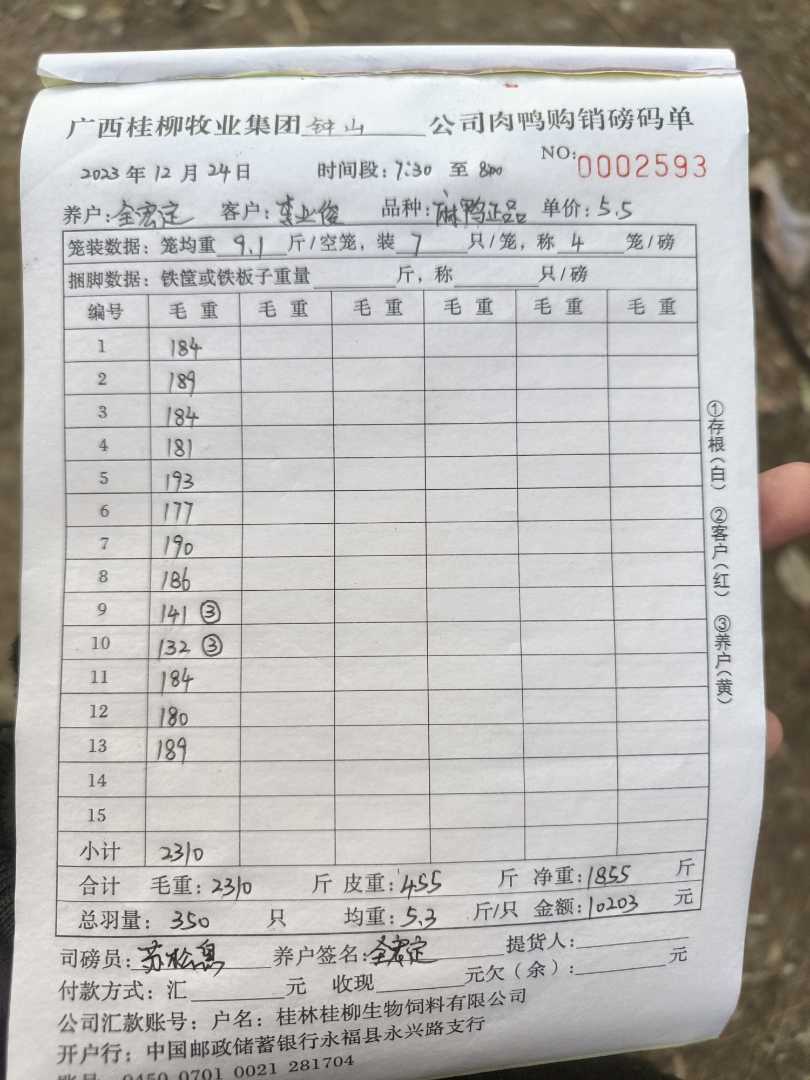 广西桂柳牧业集团钟山公司肉鸭购销磅码单
2023年12月24日 时间段:7:30至800 NO:0002593
养户:全宏定 客户:李业俊 品种:麻鸭正品 单价:5.5
笼装数据:笼均重9.1斤/空笼,装7只/笼,称4笼/磅
捆脚数据:铁筐或铁板子重量 斤,称 只/磅
编号 毛重 毛重 毛重 毛重 毛重 毛重
1 184
2 189
3 184
4 181
5 193
6 177
7 190
8 186
9 141 ③
10 132 ③
11 184
12 180
13 189
14
15
小计 2310
合计 毛重:2310 斤 皮重:455 斤 净重:1855 斤
总羽量:350 只 均重:5.3 斤/只 金额:10203 元
司磅员:苏松 养户签名:全宏定 提货人:
付款方式:汇 元 收现 元欠(余): 元
公司汇款账号:户名:桂林桂柳生物饲料有限公司
开户行:中国邮政储蓄银行永福县永兴路支行
账号 0450 0701 0021 281704
①存根(白) ②客户(红) ③养户(黄)